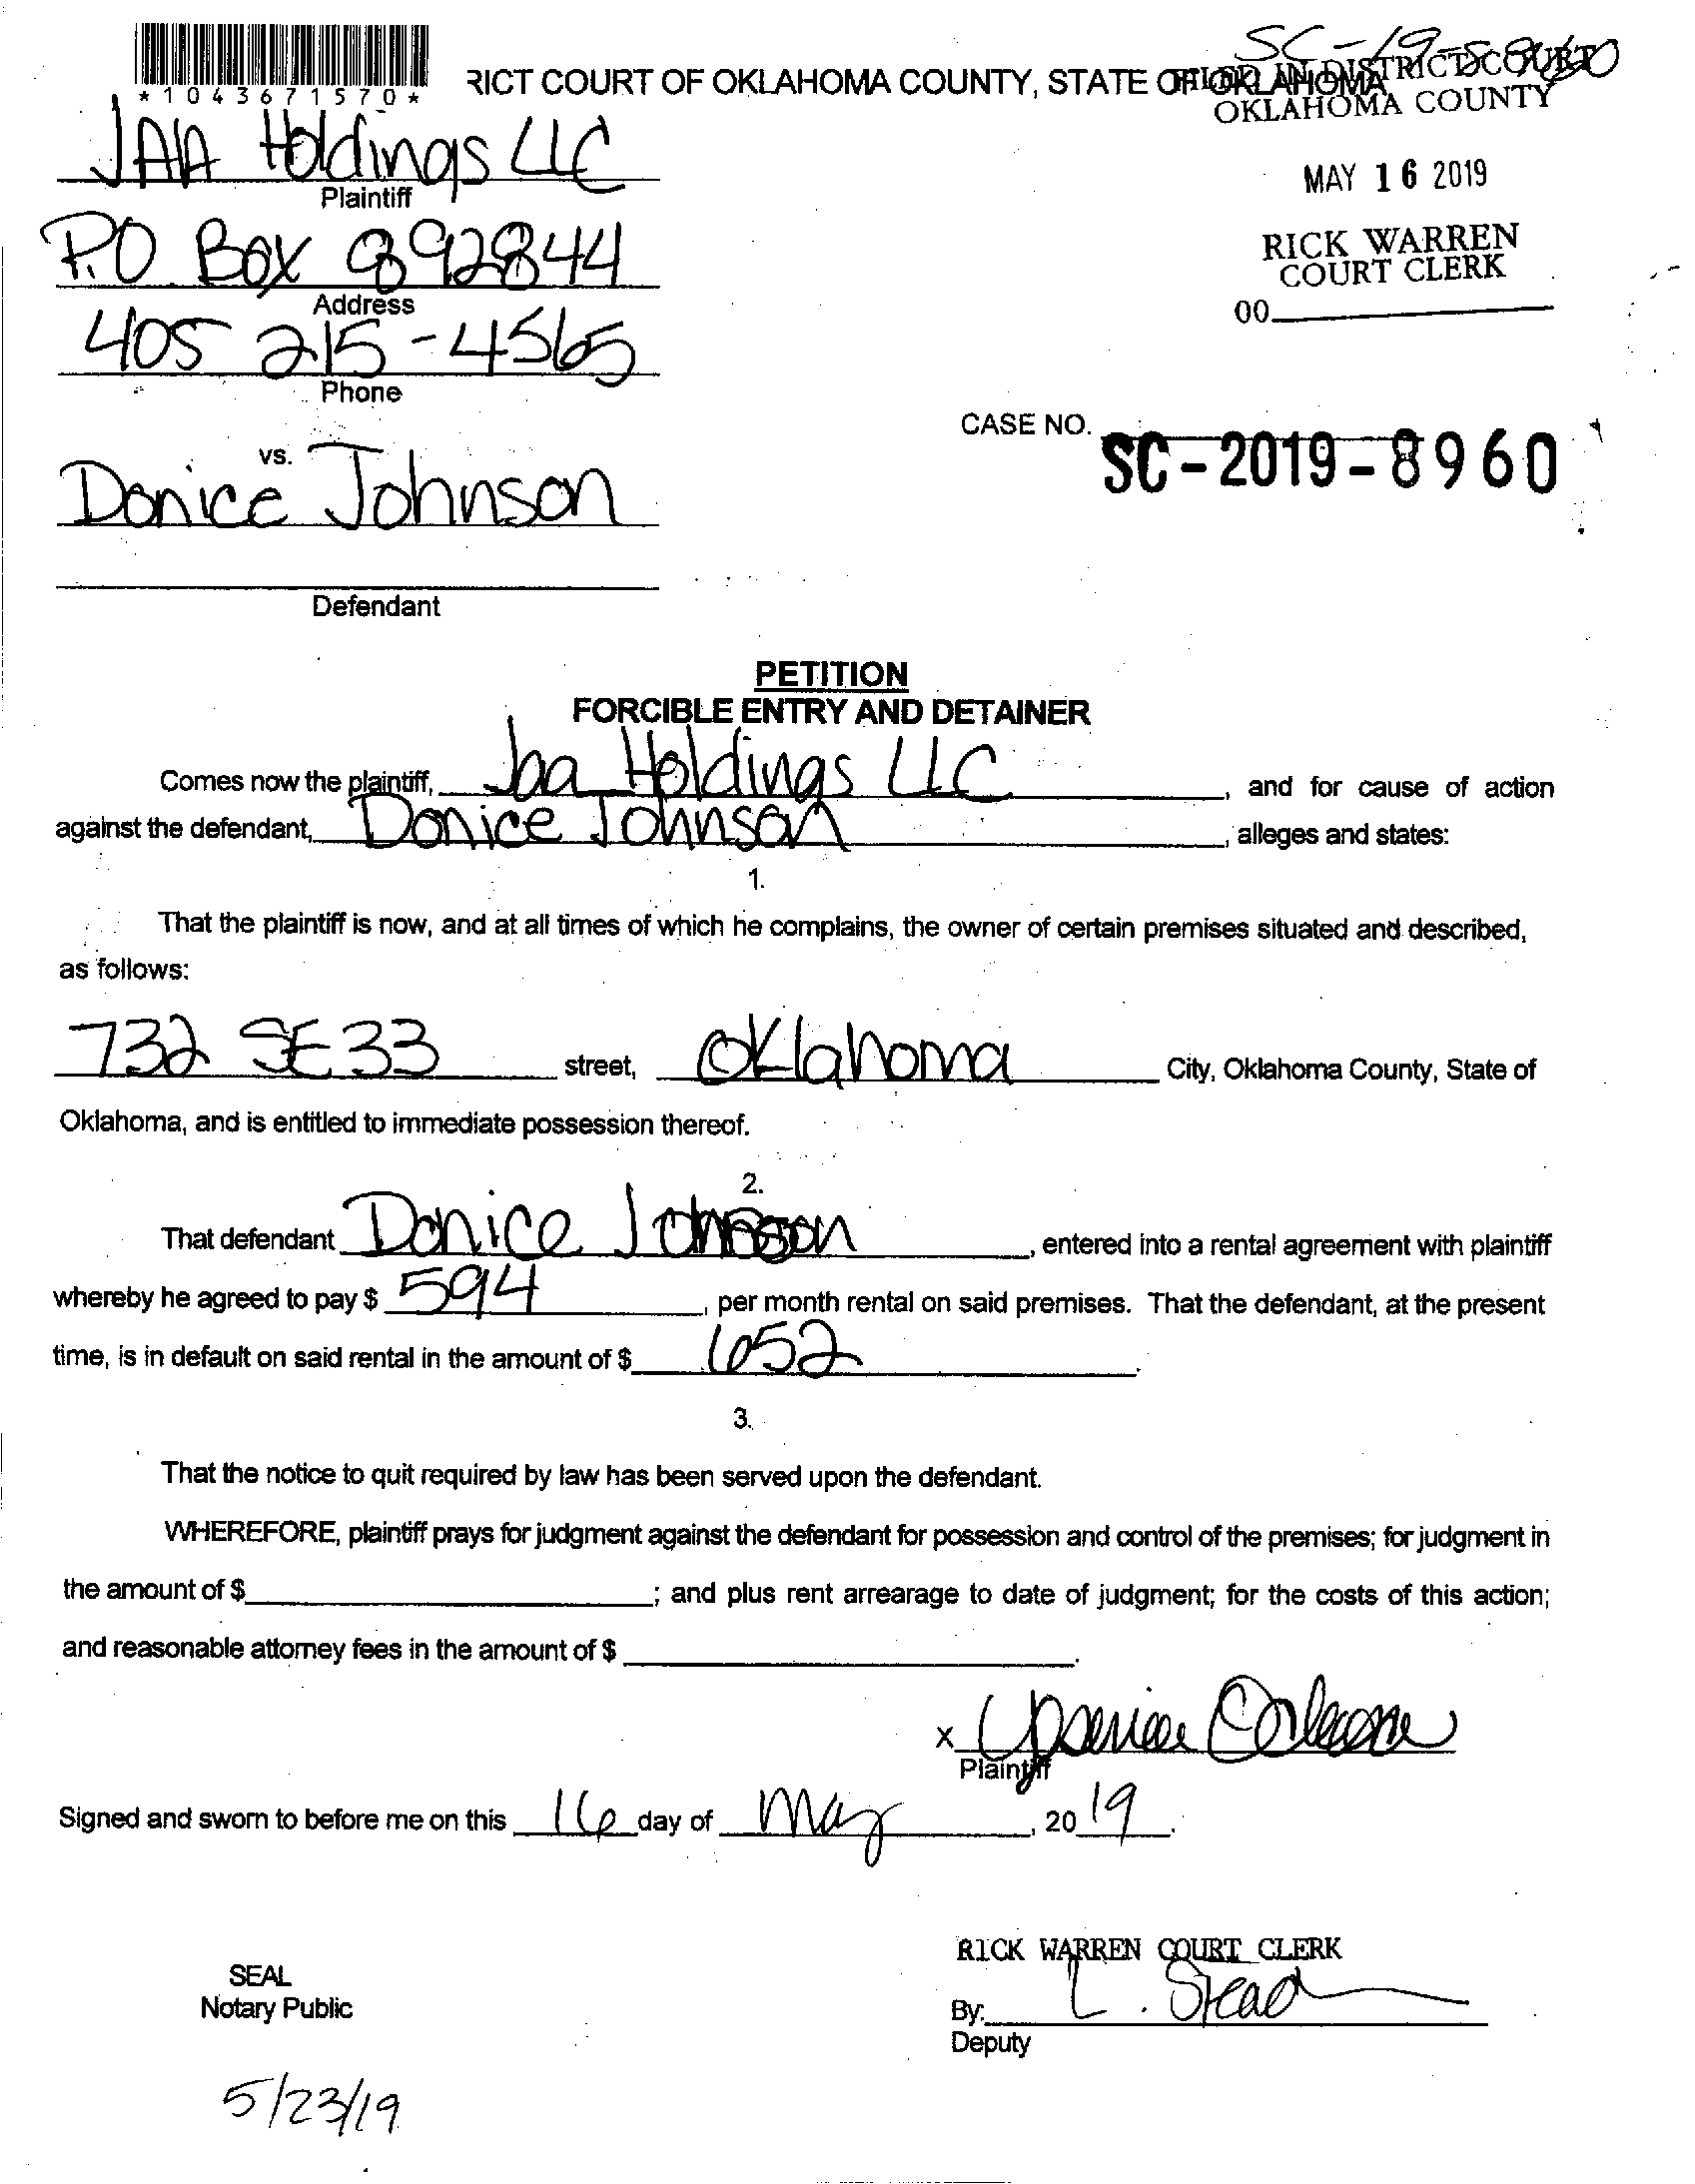 SC-19-8960
*1043671570*
RICT COURT OF OKLAHOMA COUNTY, STATE OF OKLAHOMA
FILED IN DISTRICT COURT
OKLAHOMA COUNTY
JAA Holdings LLC
Plaintiff
MAY 16 2019
P.O. Box 892844
Address
RICK WARREN
COURT CLERK
00
405 215-4565
Phone
CASE NO. SC-2019-8960
vs.
Donice Johnson
Defendant
PETITION
FORCIBLE ENTRY AND DETAINER
Comes now the plaintiff, Jaa Holdings LLC, and for cause of action
against the defendant, Donice Johnson, alleges and states:
1.
That the plaintiff is now, and at all times of which he complains, the owner of certain premises situated and described,
as follows:
732 SE 33 street, Oklahoma City, Oklahoma County, State of
Oklahoma, and is entitled to immediate possession thereof.
2.
That defendant Donice Johnson, entered into a rental agreement with plaintiff
whereby he agreed to pay $ 594, per month rental on said premises. That the defendant, at the present
time, is in default on said rental in the amount of $ 652.
3.
That the notice to quit required by law has been served upon the defendant.
WHEREFORE, plaintiff prays for judgment against the defendant for possession and control of the premises; for judgment in
the amount of $ ; and plus rent arrearage to date of judgment; for the costs of this action;
and reasonable attorney fees in the amount of $ .
x
Plaintiff
Signed and sworn to before me on this 16 day of May, 20 19.
RICK WARREN COURT CLERK
SEAL
Notary Public
By: L. Stead
Deputy
5/23/19